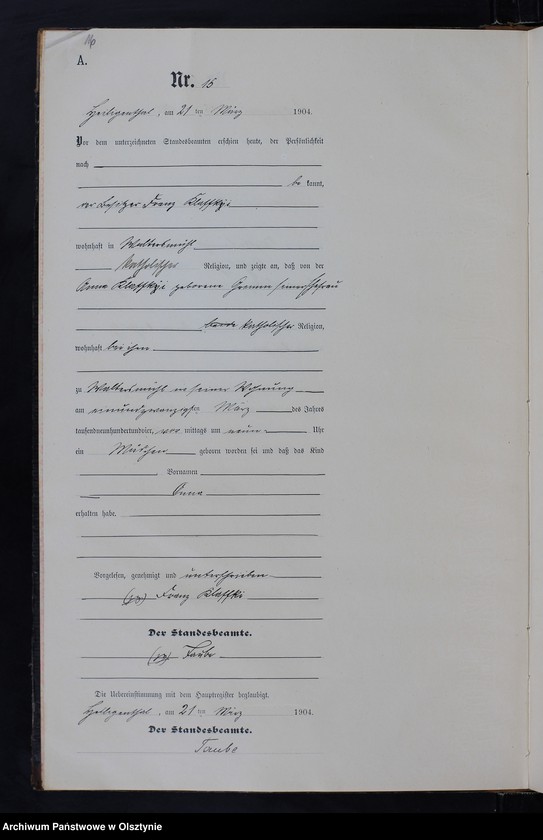 A.
Nr. 15
Heiligenthal, am 21 ten März 1904.
Vor dem unterzeichneten Standesbeamten erschien heute, der Persönlichkeit
nach
be kannt,
der Besitzer Franz
wohnhaft in Waltersmühl
katholischer Religion, und zeigte an, daß von der
Anna geborene seiner Ehefrau
katholischer Religion,
wohnhaft bei ihm
zu Waltersmühl in seiner Wohnung
am einundzwanzigsten März des Jahres
tausendneunhundertundvier, vor mittags um neun Uhr
ein Mädchen geboren worden sei und daß das Kind
Vornamen
Anna
erhalten habe.
Vorgelesen, genehmigt und unterschrieben
(gz) Franz
Der Standesbeamte.
(gz) Taube
Die Uebereinstimmung mit dem Hauptregister beglaubigt.
Heiligenthal, am 21 ten März 1904.
Der Standesbeamte.
Taube
Archiwum Państwowe w Olsztynie